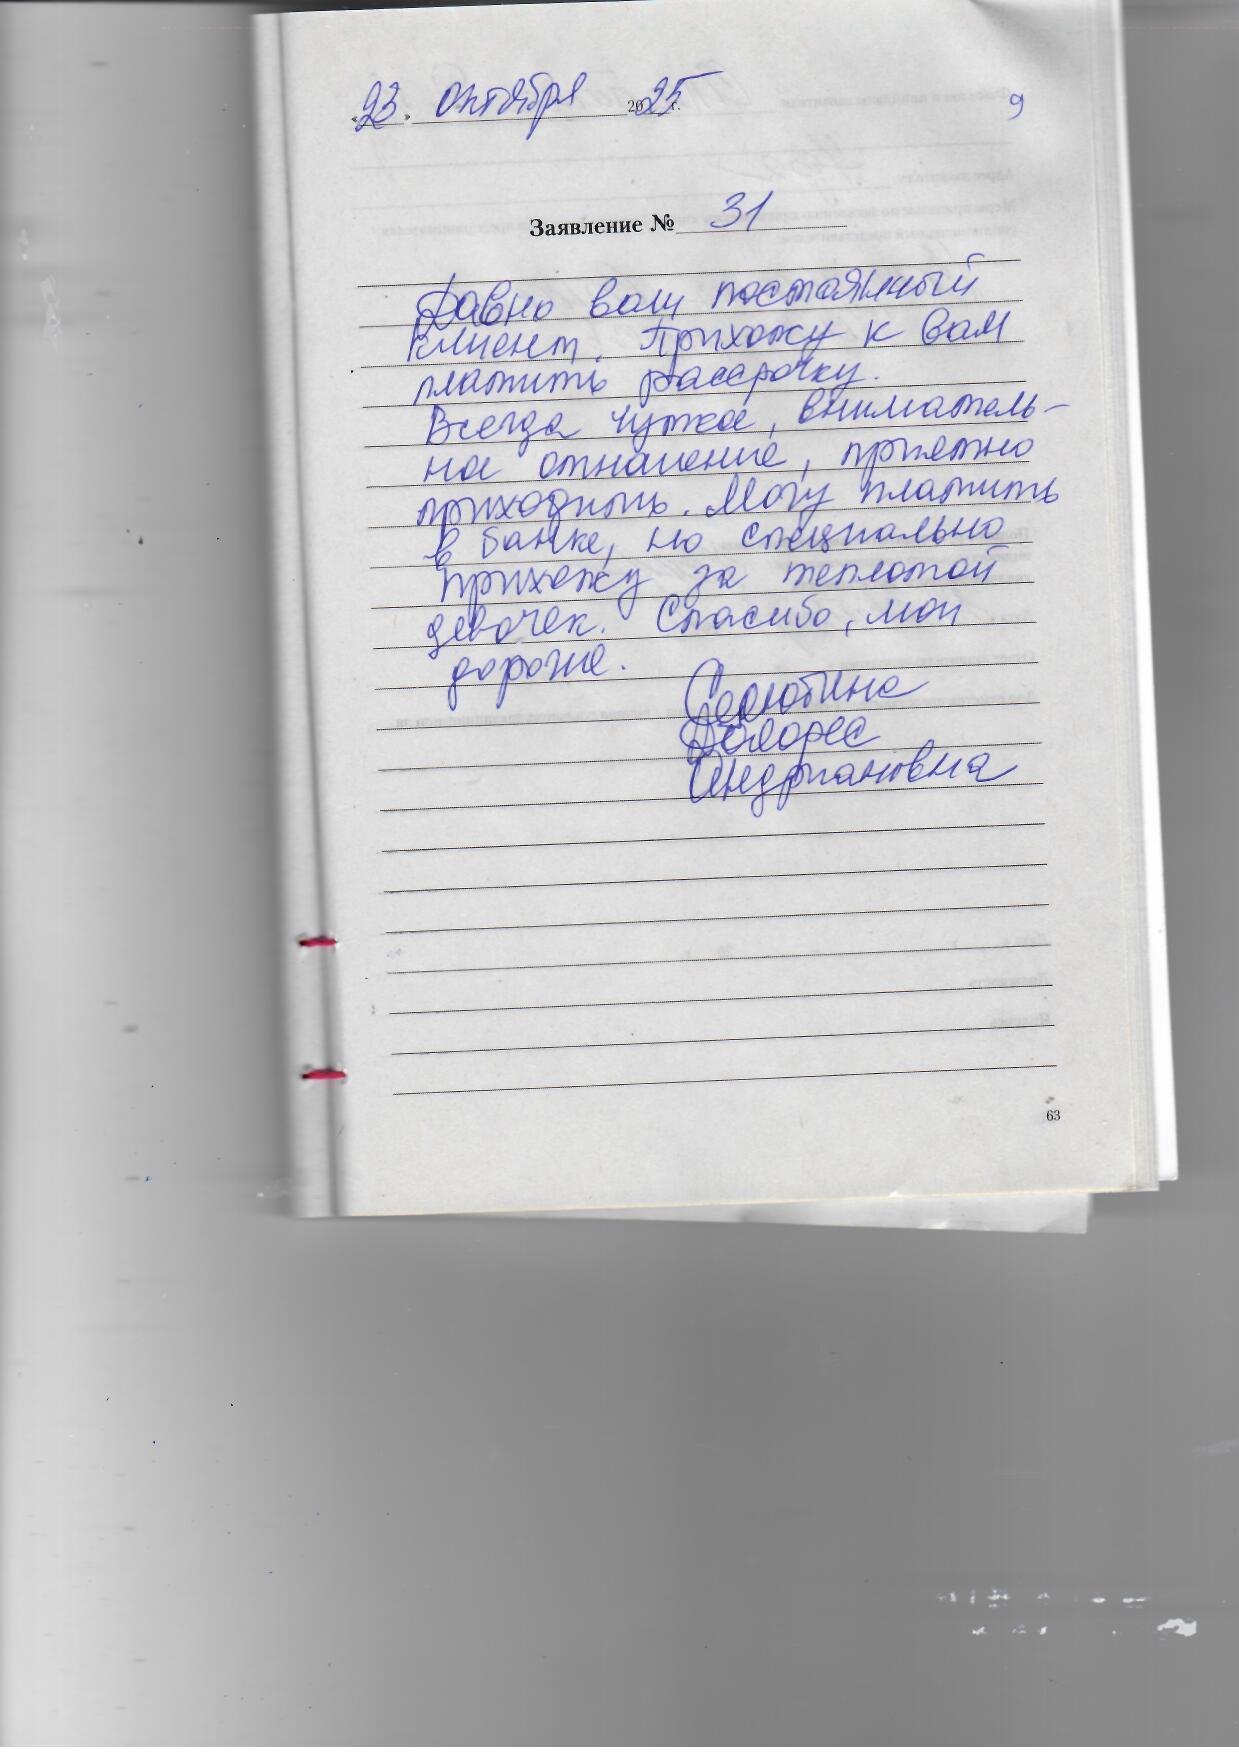 «23» октября 2025 г.
9
Заявление № 31
Давно ваш постоянный
клиент. Прихожу к вам
платить рассрочку.
Всегда чуткое, вниматель-
ное отношение, приятно
приходить. Могу платить
в банке, но специально
прихожу за теплотой
девочек. Спасибо, мои
дорогие.
Серютина
Долорес
Андриановна
63